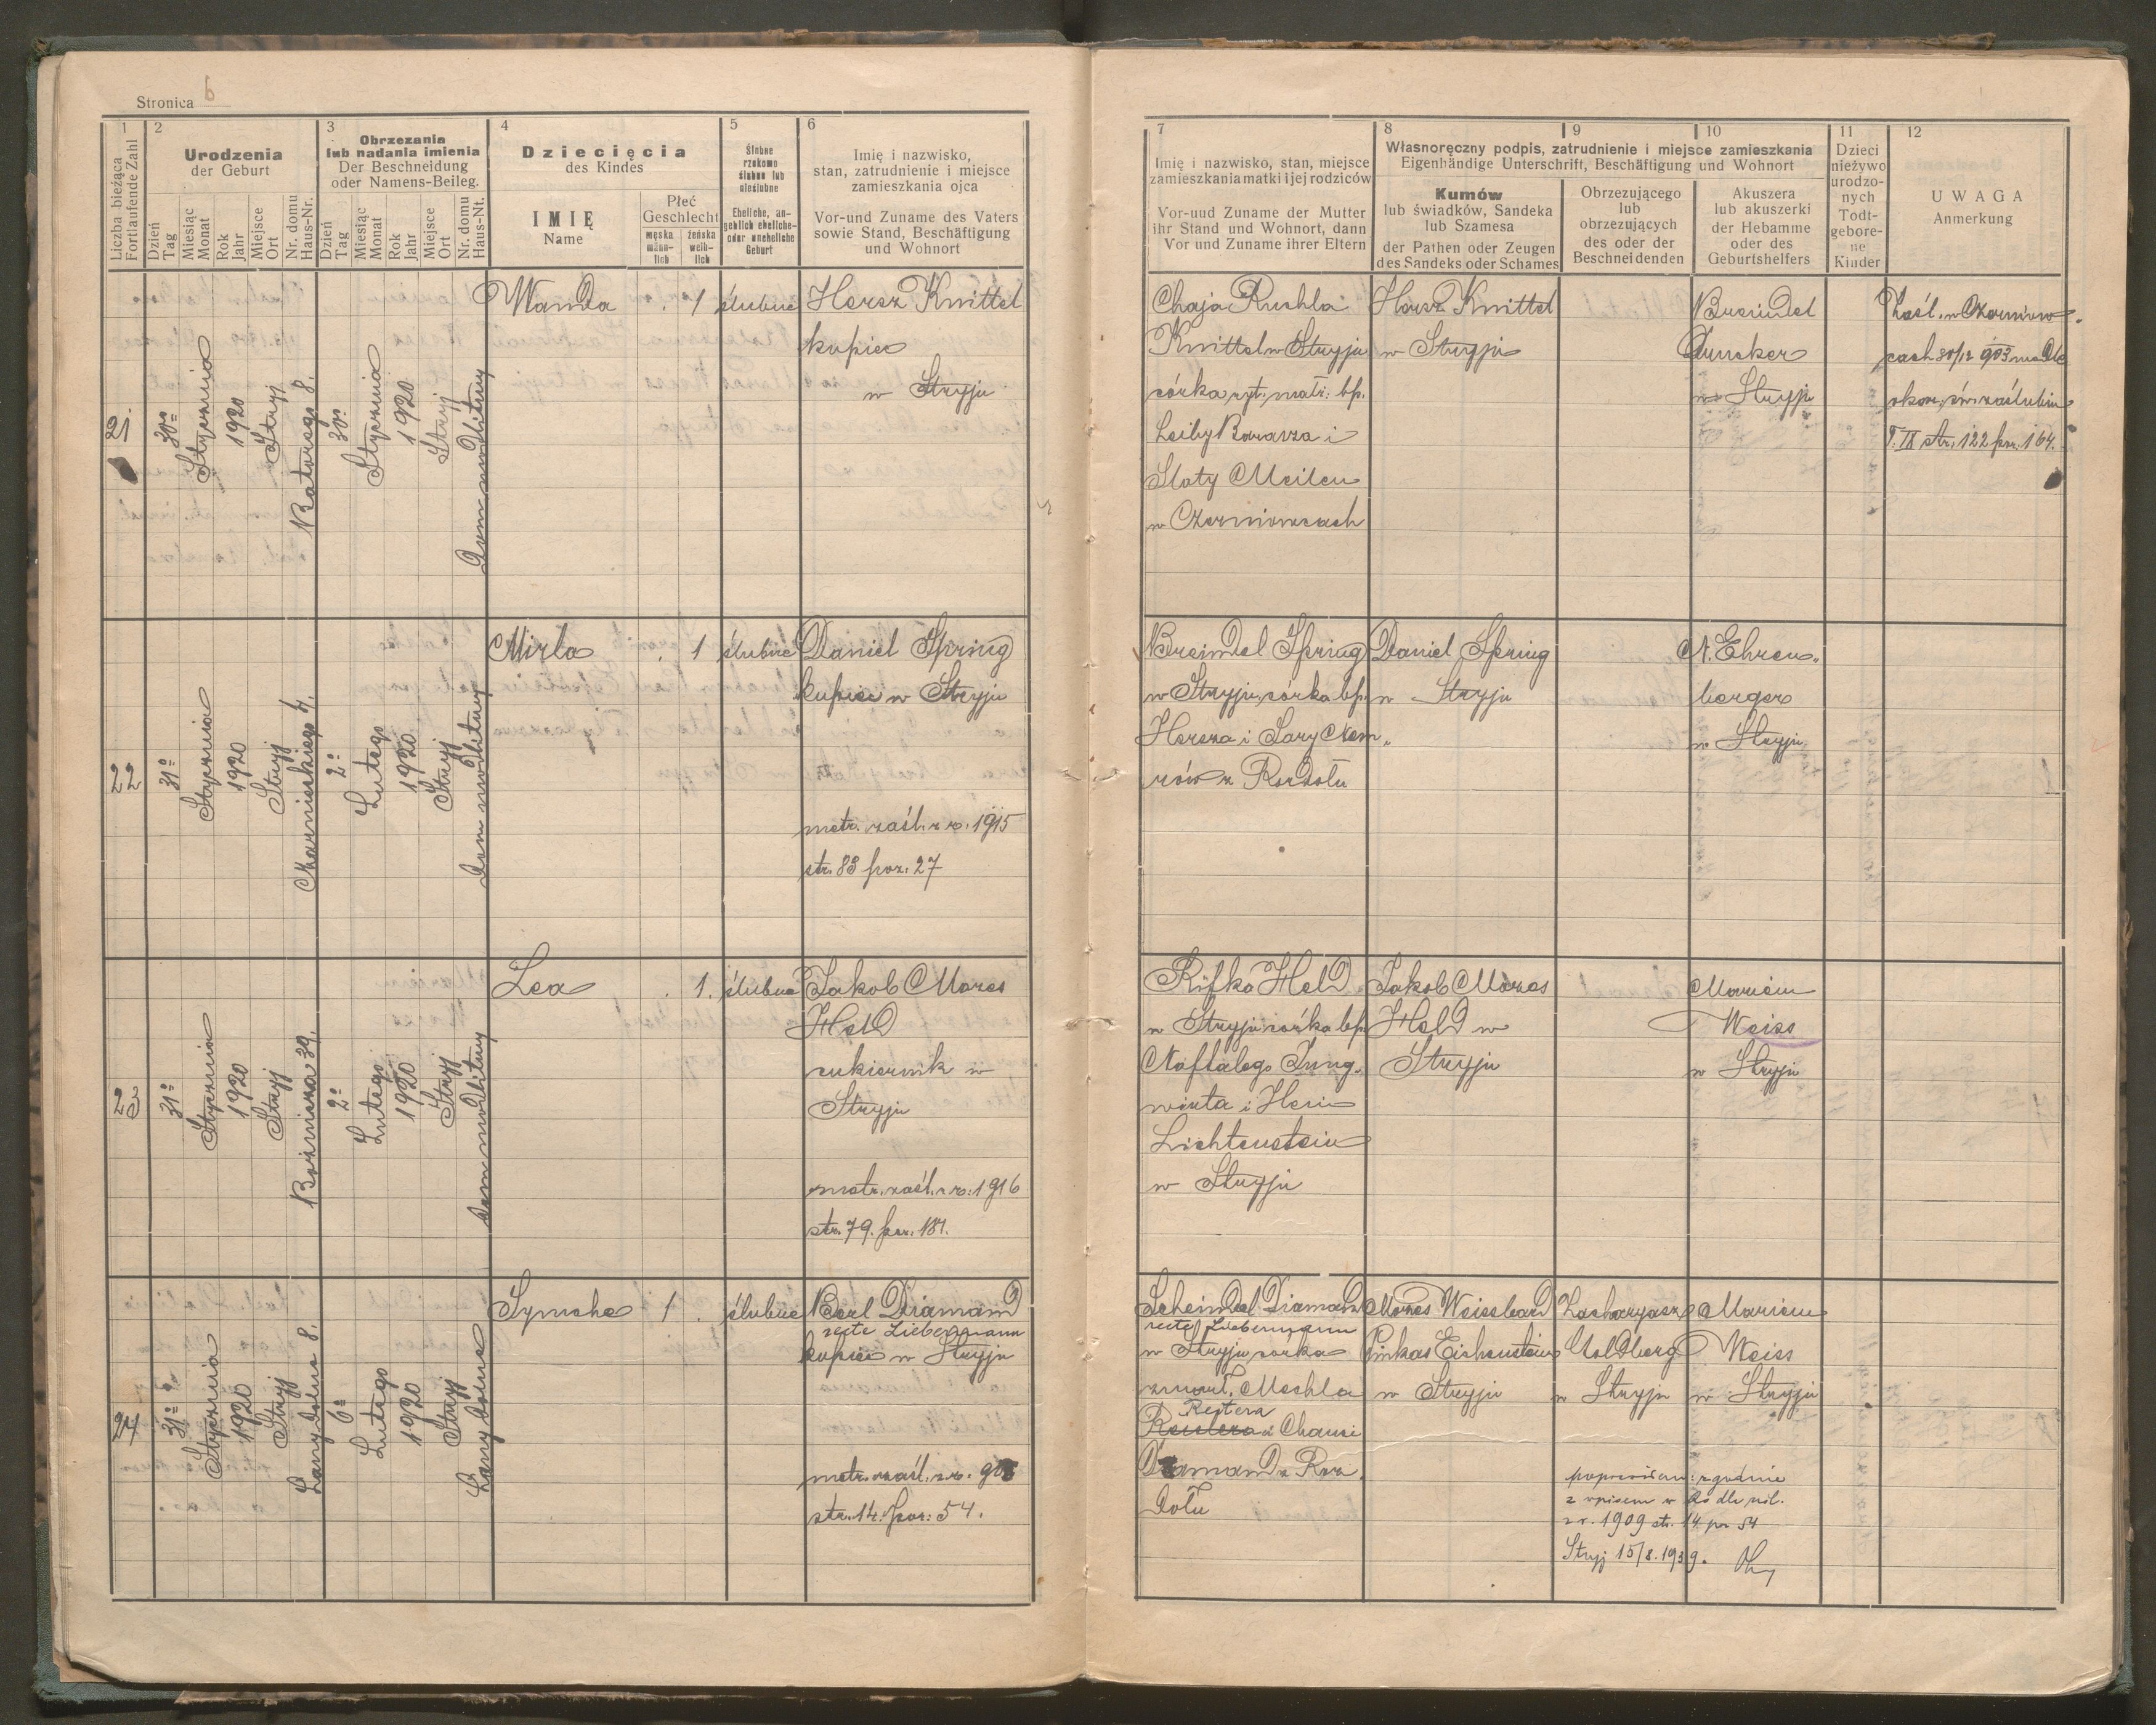 Stronica 6
1
2
3
4
5
6
Liczba bieżąca
Fortlaufende Zahl
Urodzenia
der Geburt
Obrzezania
lub nadania imienia
Der Beschneidung
oder Namens-Beileg.
Dziecięcia
des Kindes
Ślubne
rzekomo
ślubne lub
nieślubne
Eheliche, an-
geblich eheliche-
oder uneheliche
Geburt
Imię i nazwisko,
stan, zatrudnienie i miejsce
zamieszkania ojca
Vor-und Zuname des Vaters
sowie Stand, Beschäftigung
und Wohnort
Dzień
Tag
Miesiąc
Monat
Rok
Jahr
Miejsce
Ort
Nr. domu
Haus-Nr.
Dzień
Tag
Miesiąc
Monat
Rok
Jahr
Miejsce
Ort
Nr. domu
Haus-Nt.
IMIĘ
Name
Płeć
Geschlecht
męska
männ-
lich
żeńska
weib-
lich
21
30go
Stycznia
1920
Stryj
Batorego 8.
30go
Stycznia
1920
Stryj
Dom modlitwy
Wanda . 1 ślubne
Hersz Knittel
kupiec
w Stryju
22
31o
Stycznia
1920
Stryj
Czarnieckiego 4.
2o
Lutego
1920
Stryj
Dom modlitwy
Mirla . 1 ślubne
Daniel Spring
kupiec w Stryju
metr. zaśl. z r. 1915
str. 83 poz. 27
23
31o
Stycznia
1920
Stryj
Bożnicza 39.
2o
Lutego
1920
Stryj
Dom modlitwy
Lea . 1. ślubne
Jakob Mozes
Held
cukiernik w
Stryju
metr. zaśl. z r. 1916
str. 79. poz. 184.
24
31o
Stycznia
1920
Stryj
Łany dolne 8.
6o
Lutego
1920
Stryj
Łany dolne
Symche 1 . ślubne
Berl Diamand
recte Liebermann
kupiec w Stryju
metr. zaśl. z r. 909
str. 14. poz. 54.
7
8
9
10
11
12
Imię i nazwisko, stan, miejsce
zamieszkania matki i jej rodziców
Vor-uud Zuname der Mutter
ihr Stand und Wohnort, dann
Vor und Zuname ihrer Eltern
Własnoręczny podpis, zatrudnienie i miejsce zamieszkania
Eigenhändige Unterschrift, Beschäftigung und Wohnort
Kumów
lub świadków, Sandeka
lub Szamesa
der Pathen oder Zeugen
des Sandeks oder Schames
Obrzezującego
lub
obrzezujących
des oder der
Beschneidenden
Akuszera
lub akuszerki
der Hebamme
oder des
Geburtshelfers
Dzieci
nieżywo
urodzo-
nych
Todt-
gebore-
ne
Kinder
UWAGA
Anmerkung
Chaja Ruchla
Knittel w Stryju
córka ryt. małż. bp.
Leiby Barasza i
Slaty Meilen
w Czerniowcach
Hersz Knittel
w Stryju
Breindel
Juncker
w Stryju
Zaśl. w Czerniow-
cach 30/12 903 wedle
okaz. św. zaślubin
T. IX str. 122 poz. 164.
Breindel Spring
w Stryju, córka bp.
Hersza i Sary Nem-
rów z Rozdołu
Daniel Spring
w Stryju
N. Ehren-
berger
w Stryju
Rifka Held
w Stryju córka bp.
Naftalego Jung-
wirta i Heni
Lichtenstein
w Stryju
Jakob Mozes
Held w
Stryju
Mariem
Weiss
w Stryju
Scheindel Diamand
recte Liebermann
w Stryju córka
zmarł. Mechla
Rejtera
Reutera i Chanci
Diamand z Roz-
dołu
Mozes Weissbard
Pinkas Eichenstein
w Stryju
Zacharyasz
Goldberg
w Stryju
Mariem
Weiss
w Stryju
poprawiono zgodnie
z wpisem w ks dla zśl.
z r. 1909 str. 14 pz 54
Stryj 15/8. 1939.